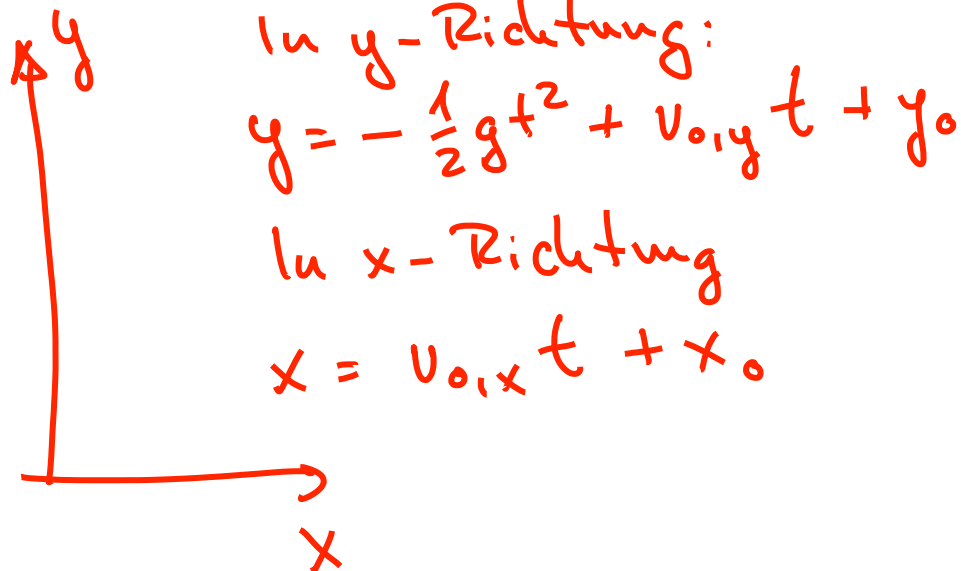 y
In y-Richtung:
y = - 1/2 g t² + v₀,y t + y₀
In x-Richtung
x = v₀,x t + x₀
x